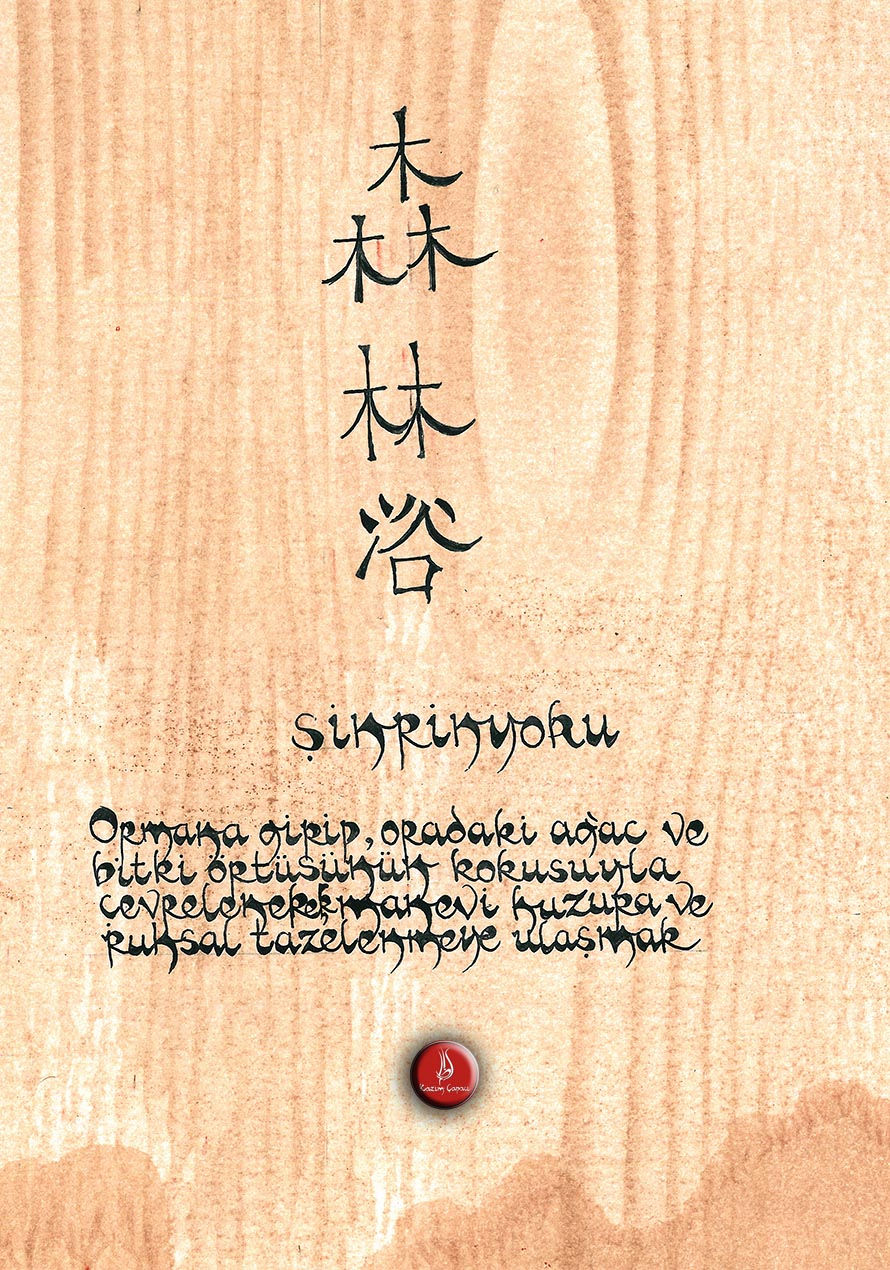 森林浴
şinrinyoku
Ormana girip, oradaki ağaç ve
bitki örtüsünün kokusuyla
çevrelenerek manevi huzura ve
ruhsal tazelenmeye ulaşmak
Kazım Çapacı